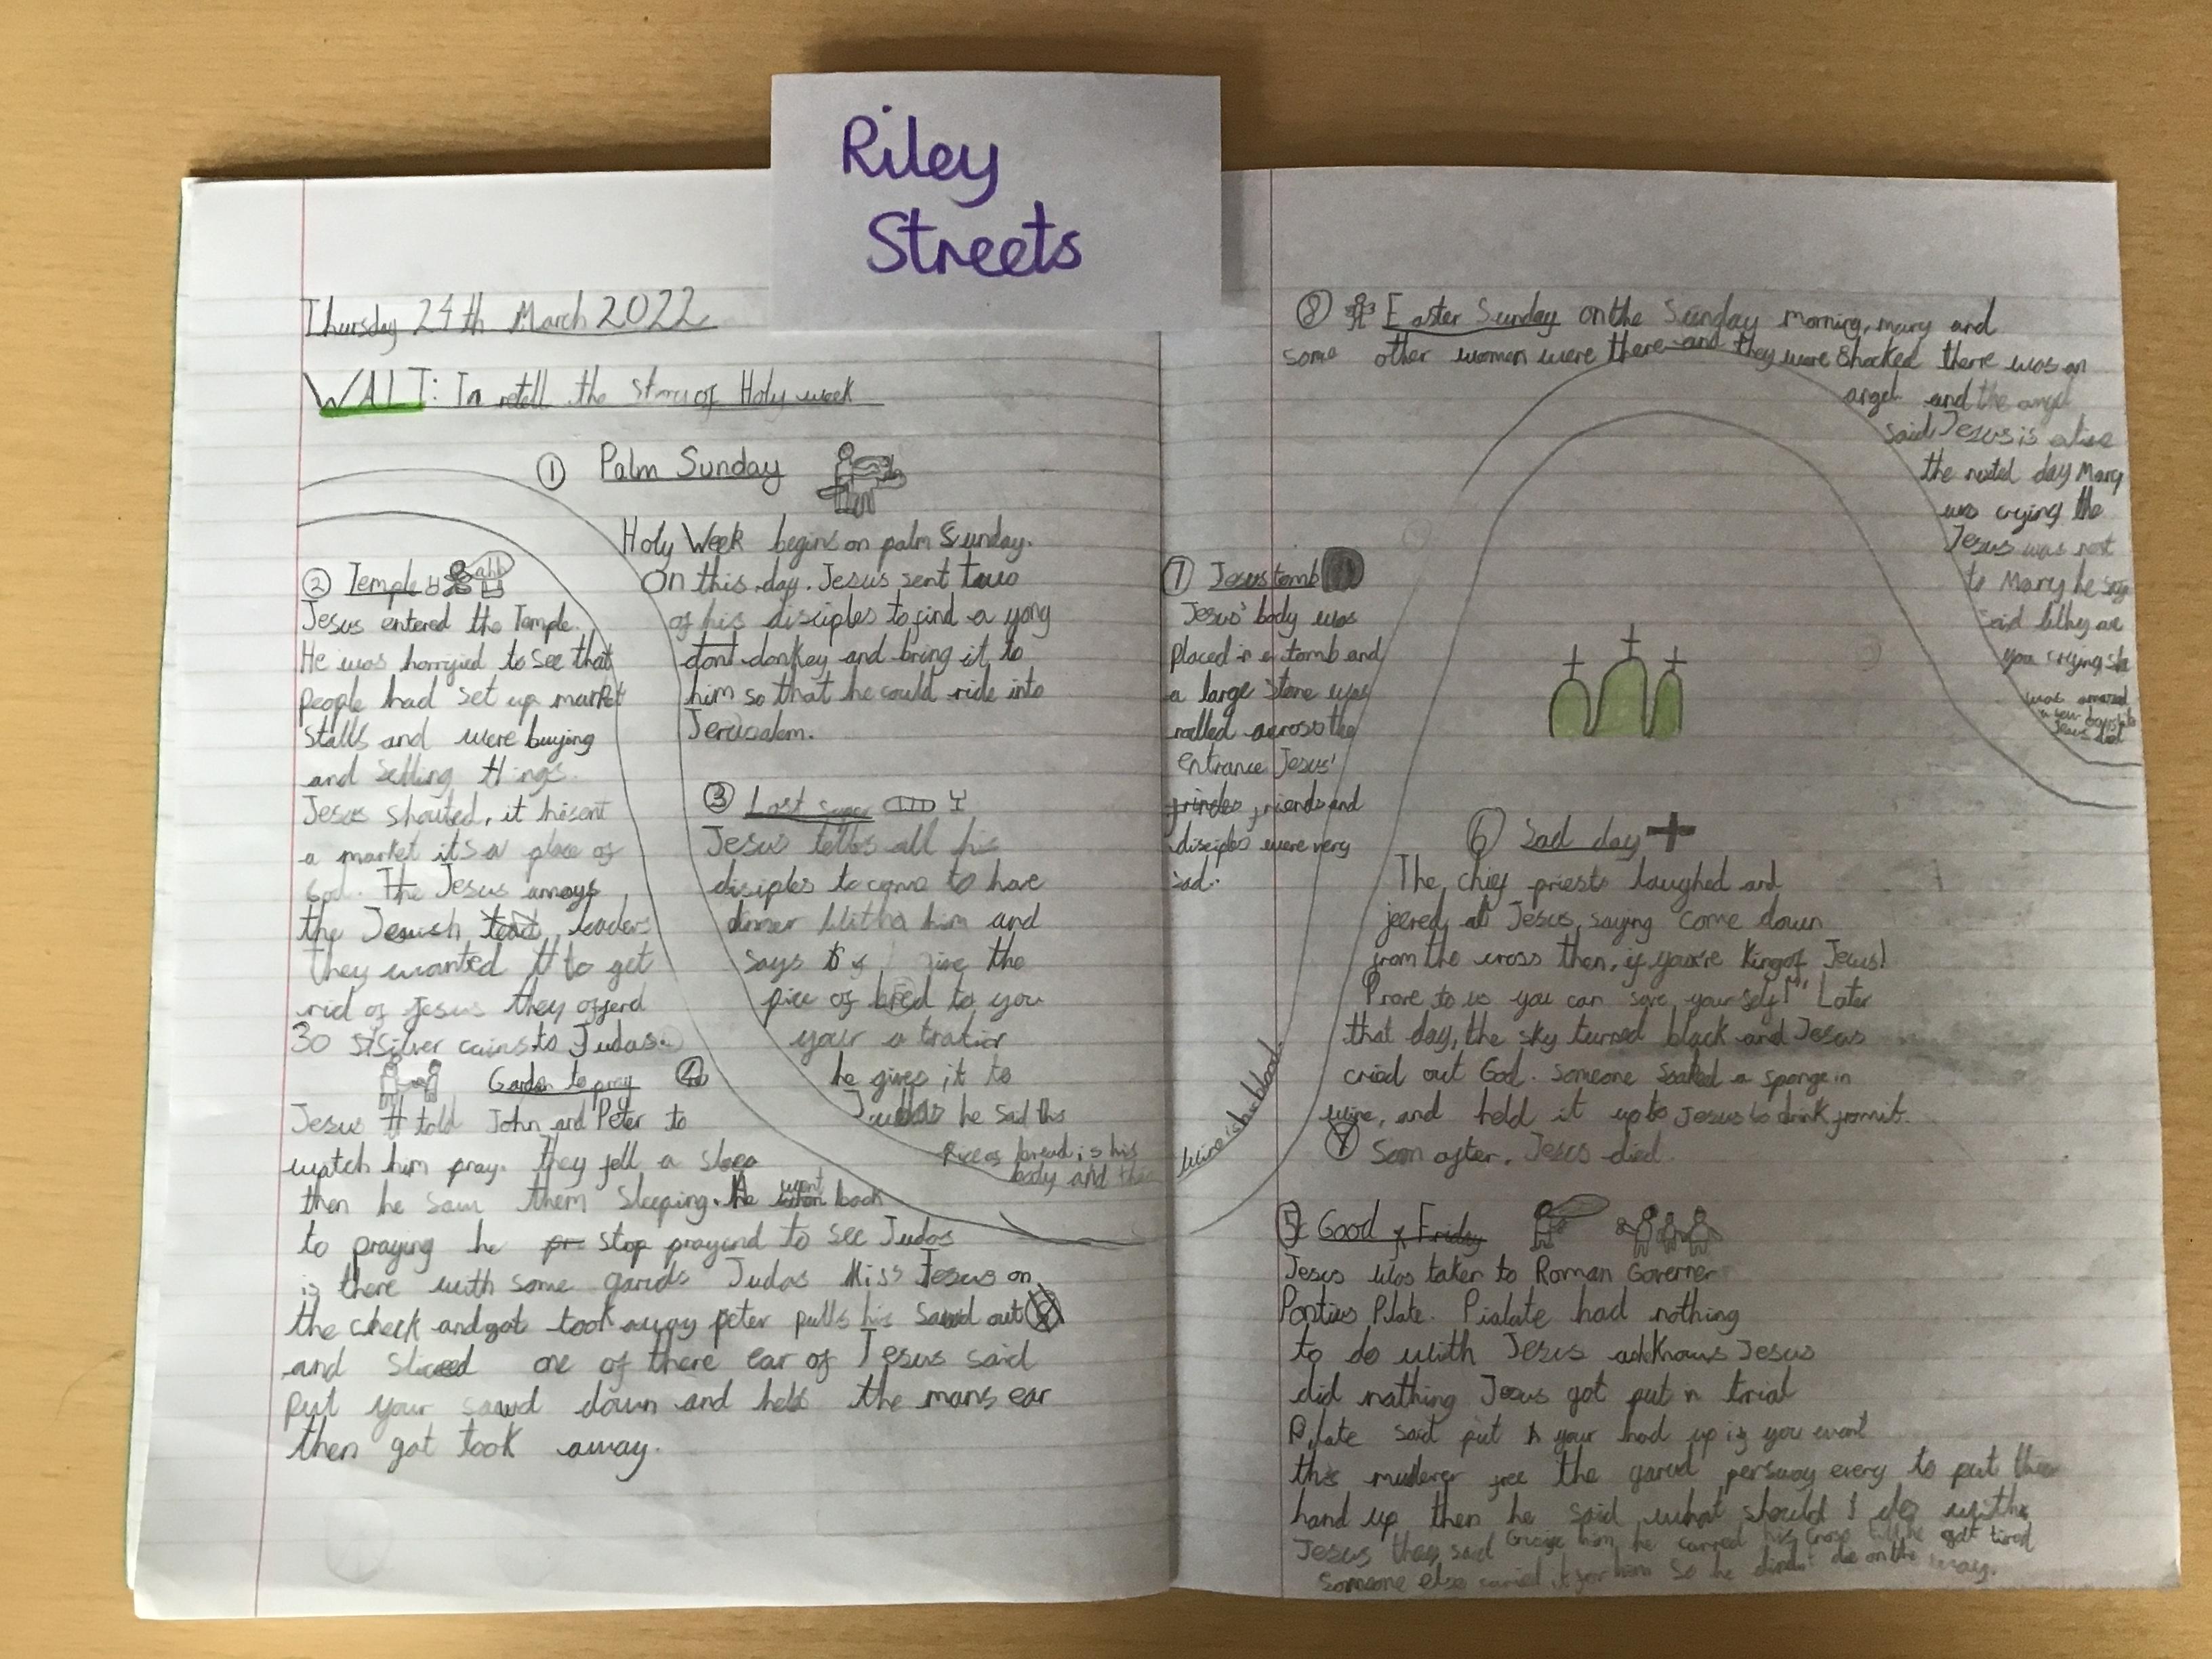 Riley
Streets
Thursday 24th March 2022
WALT: To retell the story of Holy week
① Palm Sunday
Holy Week begins on palm Sunday.
On this day. Jesus sent two
of his disciples to find a yong
dont donkey and bring it to
him so that he could ride into
Jerusalem.
② Temple
ahh
Jesus entered the Temple.
He was horryied to see that
people had set up market
stalls and were buying
and selling things.
Jesus shouted, it
a market its a place of
God. The Jesus anoys
the Jewish leaders
They wanted to get
rid of Jesus they offerd
30 silver coins to Judas.
③ Last super
Jesus tells all his
disiples to come to have
dinner with him and
says if I give the
pice of bred to you
your a tratior
he gives it to
Judas he said this
Pice of bread is his
body and this
wine is his blood.
Garden to pray ④
Jesus told John and Peter to
watch him pray. They fell a sleep
then he saw them sleeping. he went back
to praying he stop prayind to see Judas
is there with some gards Judas kiss Jesus on
the cheek and got took away peter pulls his sawd out
and sliced one of there ear of Jesus said
put your sawd down and hels the mans ear
then got took away.
⑤ Good Friday
Jesus was taken to Roman Governer
Pontius Pilate. Pialate had nothing
to do with Jesus Jesus
did nothing Jesus got put in trial
Pilate said put your had up if you want
this muderer free the garud persway every to put their
hand up then he said what should I do with
Jesus they said him he carred his cross till he got tired
Someone else carried it for him so he dindt die on the way.
⑥ Sad day
The chief priests laughed and
jeered at Jesus, saying come down
from the cross then, if you're King of Jews!
Prove to us you can save yourself!" Later
that day, the sky turned black and Jesus
cried out God. someone soaked a sponge in
wine, and held it up to Jesus to drink from it.
Soon after, Jesus died.
⑦ Jesus tomb
Jesus' body was
placed in a tomb and
a large stone was
rolled across the
entrance Jesus'
frindes friends and
disciples were very
sad.
⑧ Easter Sunday on the Sunday morning, mary and
some other women were there and they were shocked there was an
angel and the angel
said Jesus is alive
the nexted day Mary
was crying the
Jesus was next
to Mary he say
said Why are
you crying she
was amazed
Jesus died